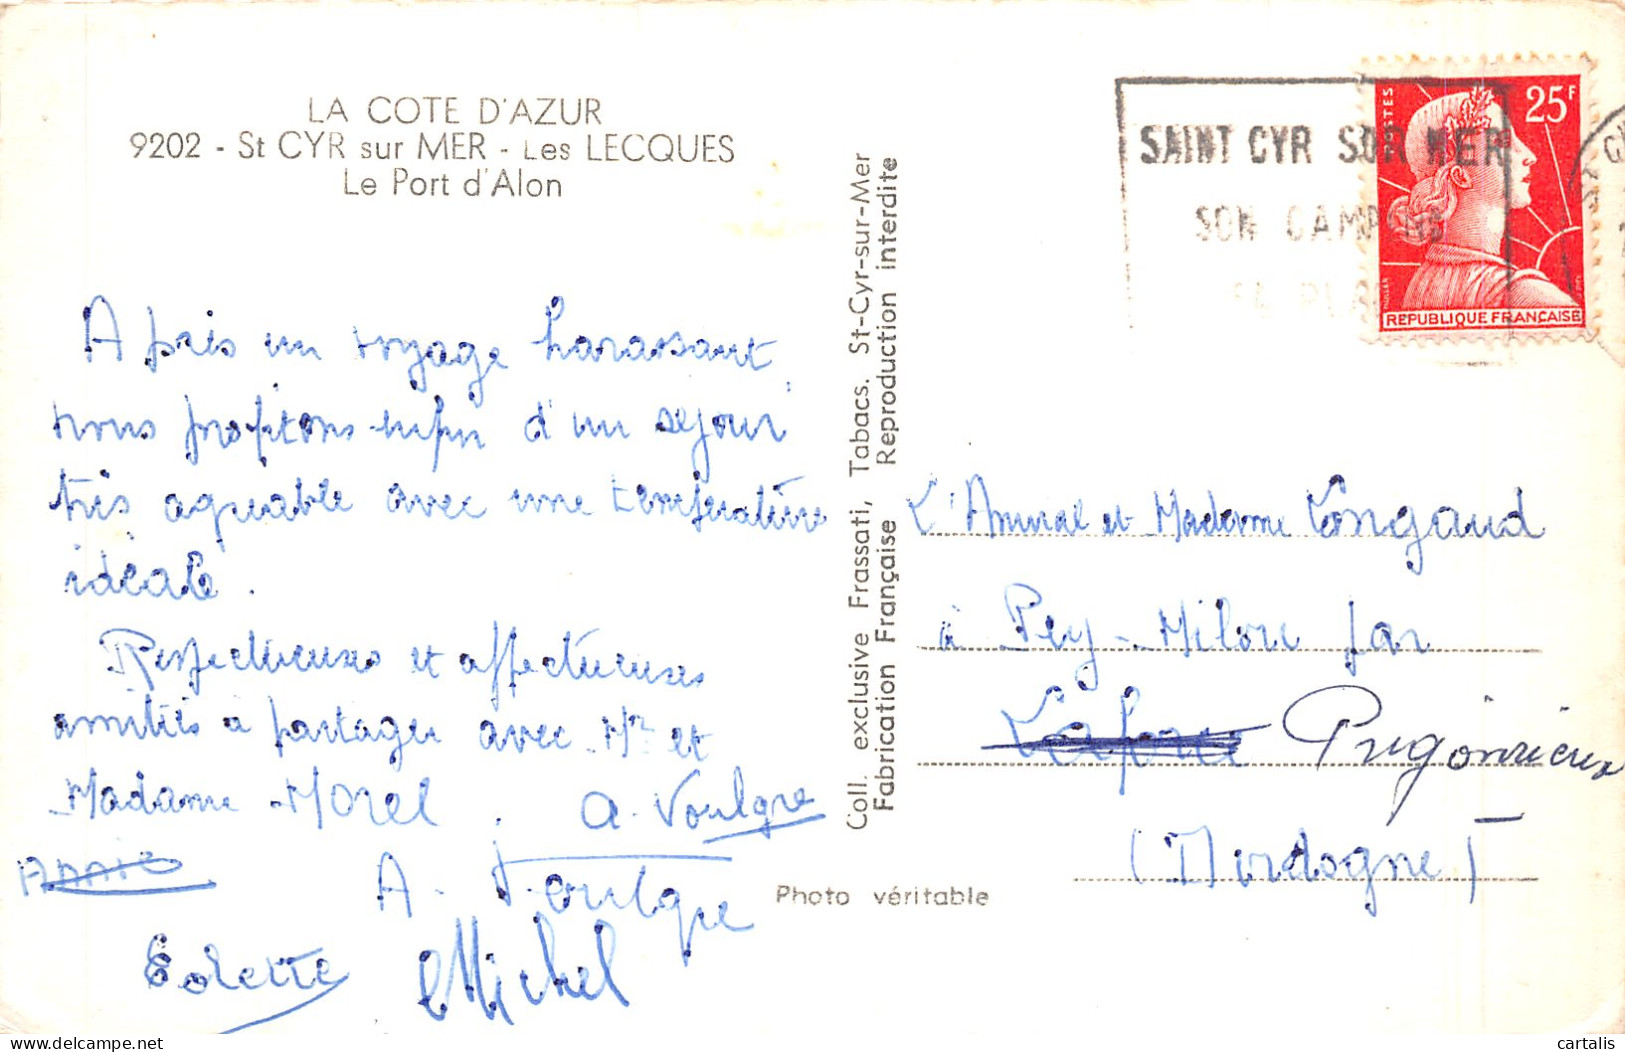 LA COTE D'AZUR
9202 - St CYR sur MER - Les LECQUES
Le Port d'Alon
Après un voyage harassant,
nous profitons enfin d'un séjour
très agréable avec une température
idéale.
Respectueuses et affectueuses
amitiés a partager avec Mr et
Madame Morel. A. Voulgre
Annie
A. Voulgre
Colette Michel
Coll. exclusive Frassati, Tabacs. St-Cyr-sur-Mer
Fabrication Française Reproduction interdite
Photo véritable
SAINT CYR SUR MER
SON
POSTES
25F
MULLER
REPUBLIQUE FRANÇAISE
L'Amiral et Madame Longaud
à Pey-Milou par
Laforce Prigonrieux
(Dordogne)
cartalis